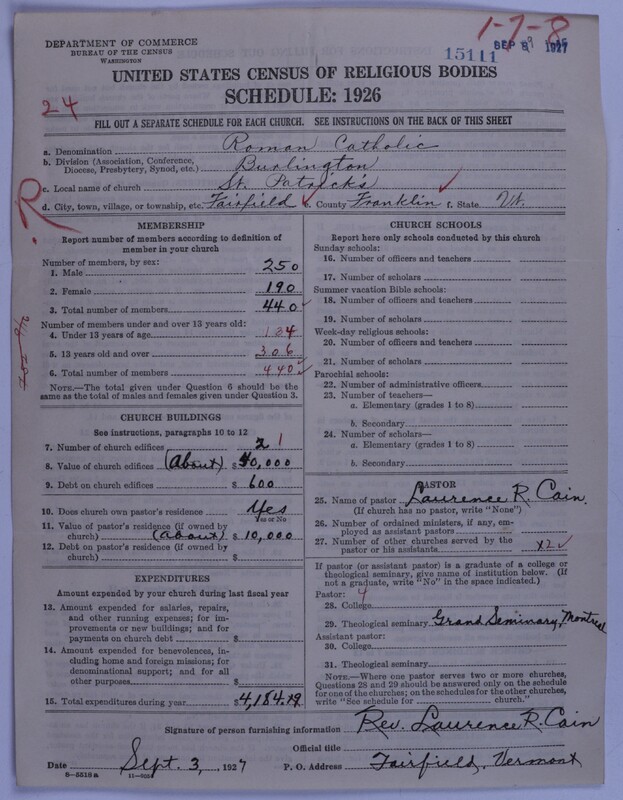 DEPARTMENT OF COMMERCE
BUREAU OF THE CENSUS
WASHINGTON
1-7-8
15111
SEP 8 1927
UNITED STATES CENSUS OF RELIGIOUS BODIES
SCHEDULE: 1926
24
FILL OUT A SEPARATE SCHEDULE FOR EACH CHURCH. SEE INSTRUCTIONS ON THE BACK OF THIS SHEET
a. Denomination Roman Catholic
b. Division (Association, Conference, Diocese, Presbytery, Synod, etc.) Burlington
c. Local name of church St. Patrick's
d. City, town, village, or township, etc. Fairfield e. County Franklin f. State Vt.
R.
MEMBERSHIP
Report number of members according to definition of
member in your church
Number of members, by sex:
1. Male 250
2. Female 190
3. Total number of members 440
Number of members under and over 13 years old:
4. Under 13 years of age 134
5. 13 years old and over 306
6. Total number of members 440
NOTE.—The total given under Question 6 should be
same as the total of males and females given under Question 3.
CHURCH BUILDINGS
See instructions, paragraphs 10 to 12
7. Number of church edifices 2 1
8. Value of church edifices (About) $ 40,000
9. Debt on church edifices $ 600
10. Does church own pastor's residence? Yes
Yes or No
11. Value of pastor's residence (if owned by
church) (about) $ 10,000
12. Debt on pastor's residence (if owned by
church) $
EXPENDITURES
Amount expended by church during last fiscal year
13. Amount expended for salaries, repairs,
and other running expenses; for im-
provements or new buildings; and for
payments on church debt $
14. Amount expended for benevolences, in-
cluding home and foreign missions; for
denominational support; and for all
other purposes $
15. Total expenditures during year $ 4,184.49
CHURCH SCHOOLS
Report here only schools conducted by this church
Sunday schools:
16. Number of officers and teachers
17. Number of scholars
Summer vacation Bible schools:
18. Number of officers and teachers
19. Number of scholars
Week-day religious schools:
20. Number of officers and teachers
21. Number of scholars
Parochial schools:
22. Number of administrative officers
23. Number of teachers—
a. Elementary (grades 1 to 8)
b. Secondary
24. Number of scholars—
a. Elementary (grades 1 to 8)
b. Secondary
PASTOR
25. Name of pastor Laurence R. Cain.
(If church has no pastor, write "None")
26. Number of ordained ministers, if any, em-
ployed as assistant pastors
27. Number of other churches served by the
pastor or his assistants x2
If pastor (or assistant pastor) is a graduate of a college or
theological seminary, give name of institution below. (If
not a graduate, write "No" in the space indicated.)
Pastor: 4
28. College
29. Theological seminary Grand Seminary, Montreal
Assistant pastor:
30. College
31. Theological seminary
NOTE.—Where one pastor serves two or more churches,
Questions 28 and 29 should be answered only on the schedule
for one of the churches; on the schedules for the other churches,
write "See schedule for church."
Signature of person furnishing information Rev. Laurence R. Cain
Official title
Date Sept. 3, 1927 P. O. Address Fairfield, Vermont
8—5318a 11—935